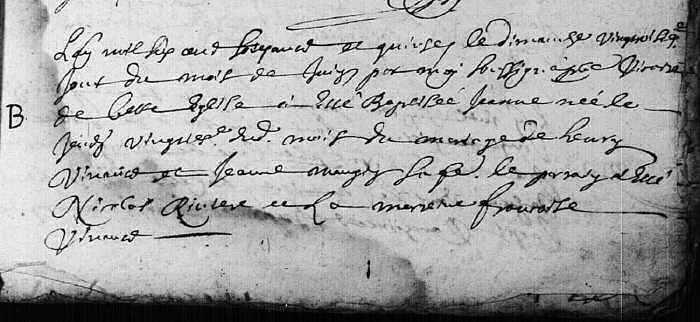 Lan mil six cent soixante et quinze le dimanche vingt
jour du mois de Juin par moy soubsigné vicaire
B de cette Eglise a esté Baptisée Jeanne née le
Jeudy vingties. dud. mois du mariage de henry
Vincent et Jeanne sa fe. le parain a esté
Nicolas Riviere et La mareine francoise
Vincent